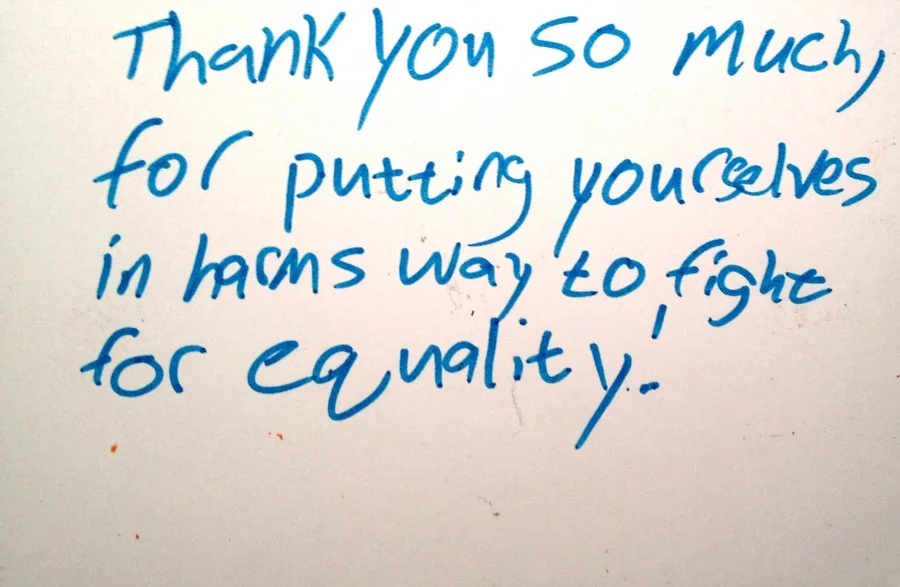 Thank you so much,
for putting yourselves
in harms way to fight
for equality!